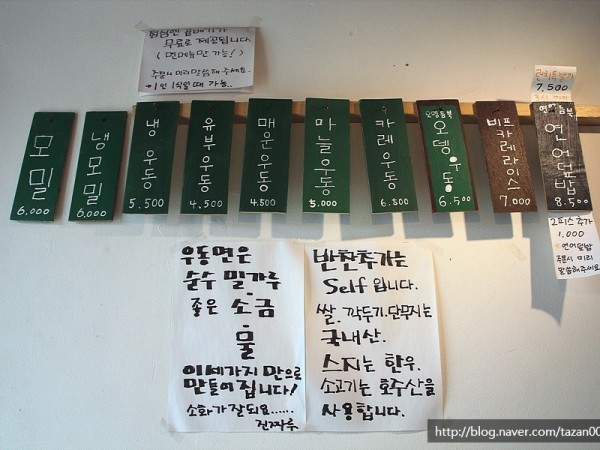 곱배기가
무료로 제공됩니다.
(면메뉴만 가능!)
주문시 미리 말씀해 주세요.
1인 1식일 때 가능..
모밀
6.000
냉모밀
6.000
냉우동
5.500
유부우동
4.500
매운우동
4.500
마늘우동
5.000
카레우동
6.500
오뎅우동
6.500
비프카레라이스
7.000
연어덮밥
8.500
7,500
2피스 추가
1,000
연어덮밥
주문시 미리
말씀해주세요
우동면은
순수 밀가루
좋은 소금
물
이 세가지 만으로
만들어 집니다!
소화가 잘되요......
반찬추가는
Self 입니다.
쌀. 깍두기.단무지는
국내산.
스지는 한우.
소고기는 호주산을
사용합니다.
http://blog.naver.com/tazan00